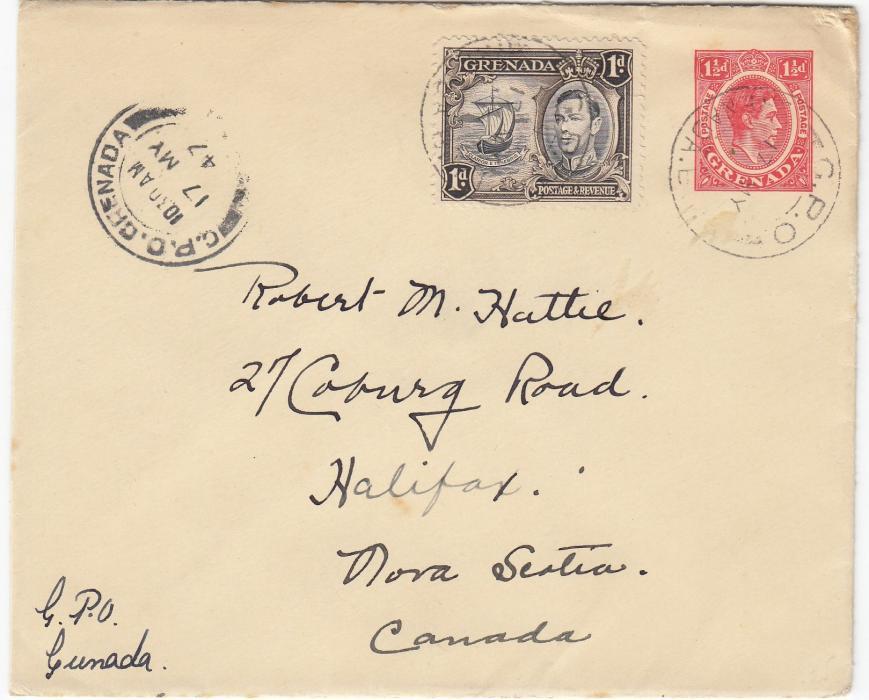 GRENADA 1d
1d POSTAGE & REVENUE
1½d 1½d
POSTAGE POSTAGE
GRENADA
G.P.O. GRENADA
1030 AM
17 MY
47
G.P.O
Robert M. Hattie.
27 Coburg Road.
Halifax.
Nova Scotia.
Canada
G.P.O.
Grenada.